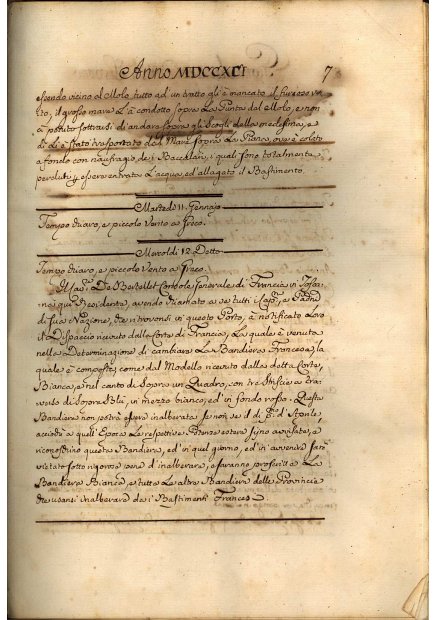 Anno MDCCXCI 7
essendo vicino al Molo tutto ad un tratto gli è mancato il furioso ven
to, il grosso mare Là condotto sopra La Punta del Molo, e non
à potuto sottrarsi di andare sopra gli Scogli della medesima, e
di Lì è stato trasportato dal Mare sopra La
a fondo con naufragio de i Baccalari, i quali sono totalmente
perduti, essere entrata L'acqua, ed allagato il Bastimento.
Martedì 11. Gennajo
Tempo chiaro, e piccolo Vento a Greco.
Mercoldì 12. Detto
Tempo chiaro, e piccolo Vento a Greco.
Il Sig.r De Bertellet Console Generale di Francia in Tosca,
na qui Residente, avendo chiamato a se tutti i Cap.ni, e Padni
di sua Nazione, che ritrovansi in questo Porto, à notificato Loro
il Dispaccio ricevuto dalla Corte di Francia, La quale è venuta
nella Determinazione di cambiare La Bandiera Francese, la
quale è composta, come dal Modello ricevuto dalla detta Corte,
Bianca, e nel canto di Sopra un Quadro, con tre Striscie a tra,
verso di Sopra Blù, in mezzo bianco, ed in fondo rosso. Questa
Bandiera non potrà essere inalberata se non se il dì p.mo d'Aprile,
acciò a quell'Epoca Le respettive Potenze estere sijno avvisate, a
riconoschino questa Bandiera, ed in quel giorno, ed in avvenire sarà
vietato sotto rigorose pene d'inalberare, e saranno proscritte La
Bandiera Bianca, e tutte Le altre Bandiere delle Provincie
che usansi inalberare da i Bastimenti Francesi.